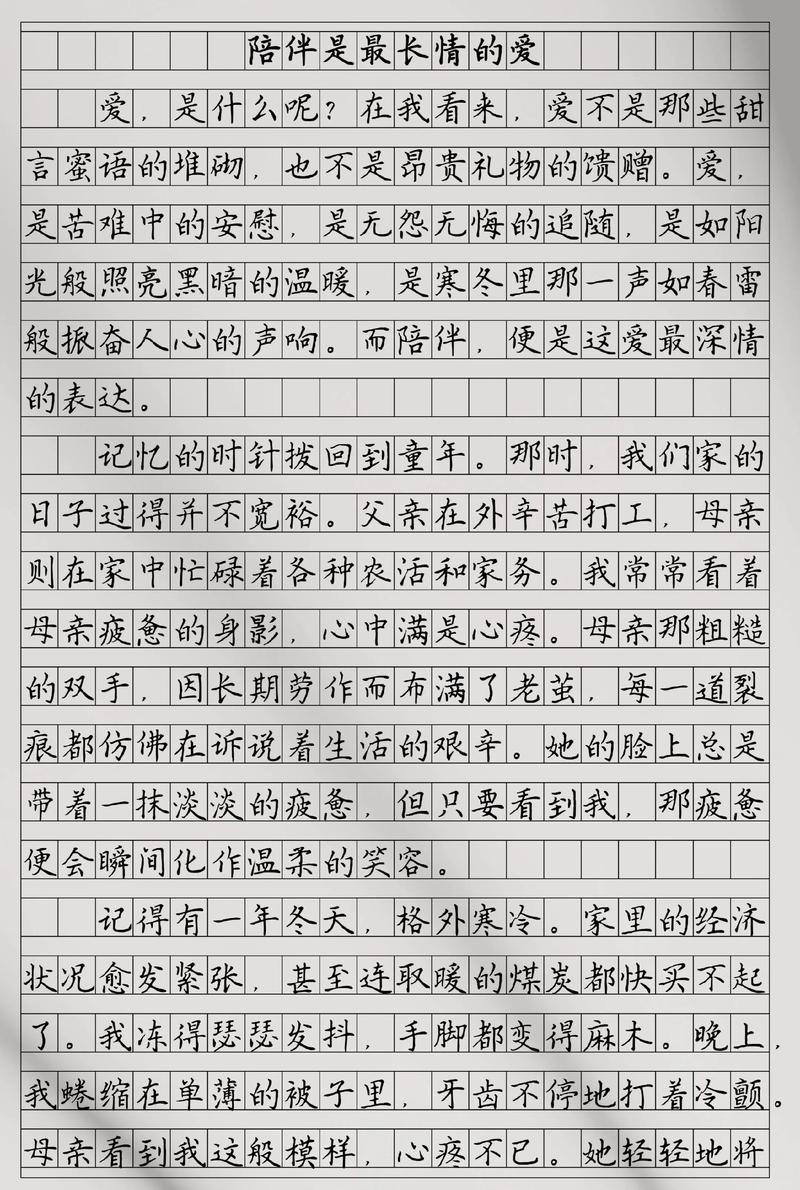 陪伴是最长情的爱
爱，是什么呢？在我看来，爱不是那些甜
言蜜语的堆砌，也不是昂贵礼物的馈赠。爱，
是苦难中的安慰，是无怨无悔的追随，是如阳
光般照亮黑暗的温暖，是寒冬里那一声如春雷
般振奋人心的声响。而陪伴，便是这爱最深情
的表达。
记忆的时针拨回到童年。那时，我们家的
日子过得并不宽裕。父亲在外辛苦打工，母亲
则在家中忙碌着各种农活和家务。我常常看着
母亲疲惫的身影，心中满是心疼。母亲那粗糙
的双手，因长期劳作而布满了老茧，每一道裂
痕都仿佛在诉说着生活的艰辛。她的脸上总是
带着一抹淡淡的疲惫，但只要看到我，那疲惫
便会瞬间化作温柔的笑容。
记得有一年冬天，格外寒冷。家里的经济
状况愈发紧张，甚至连取暖的煤炭都快买不起
了。我冻得瑟瑟发抖，手脚都变得麻木。晚上，
我蜷缩在单薄的被子里，牙齿不停地打着冷颤。
母亲看到我这般模样，心疼不已。她轻轻地将